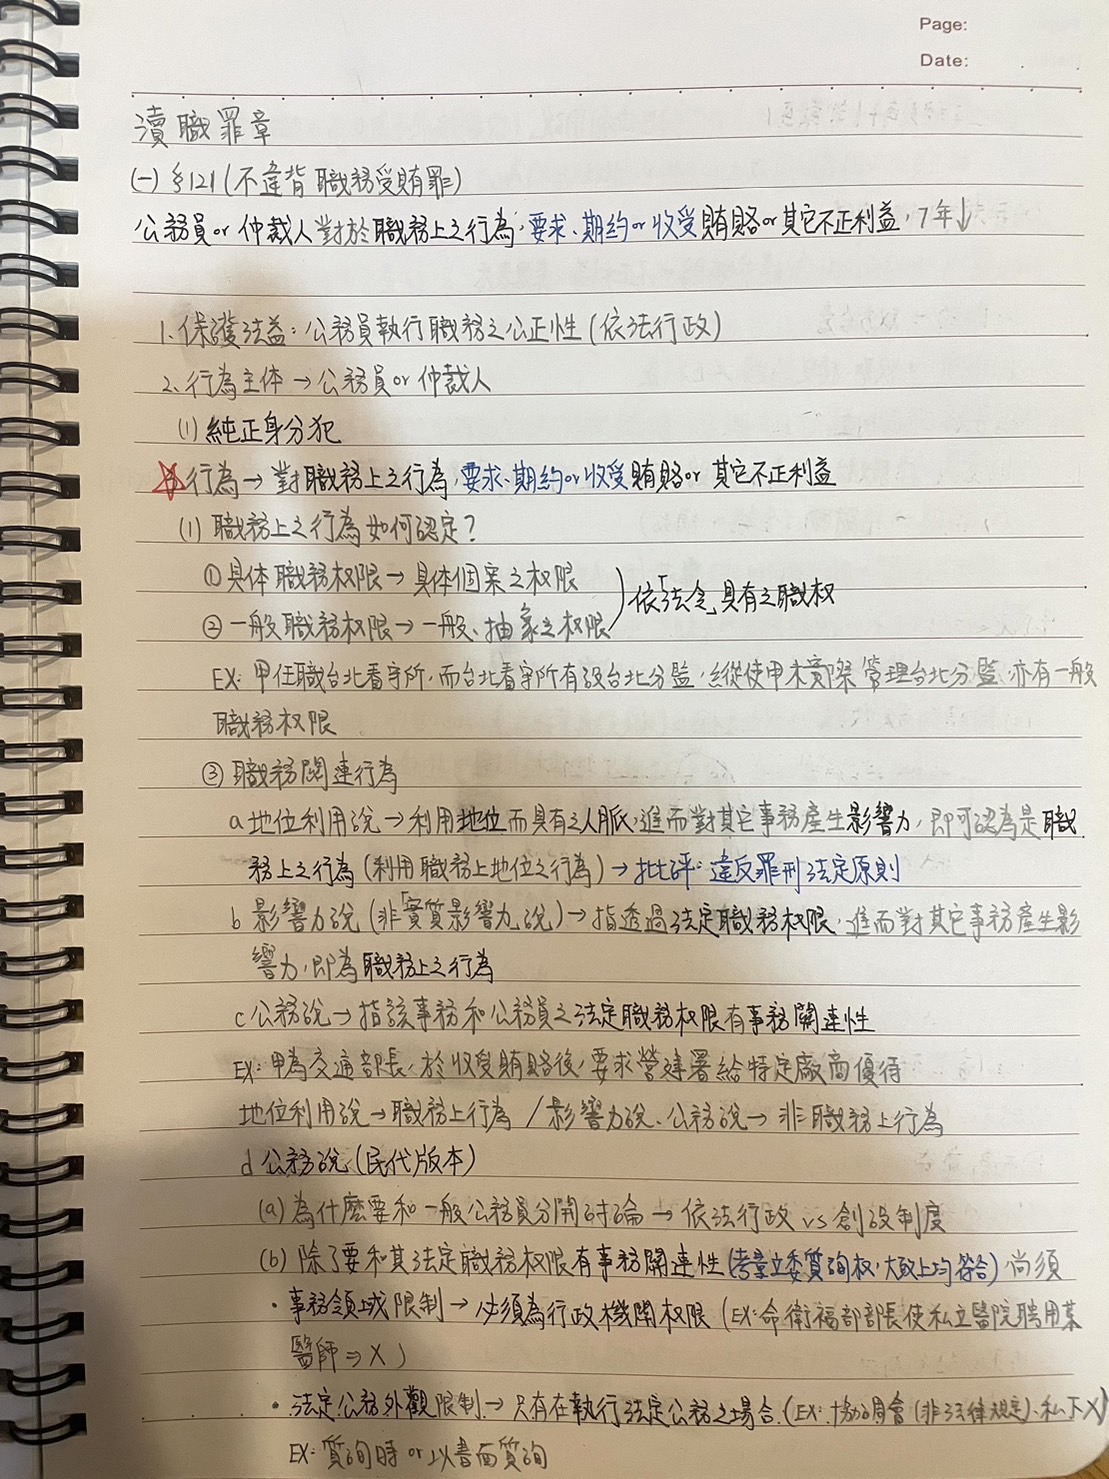 Page:
Date:
瀆職罪章
(一) §121(不違背職務受賄罪)
公務員or仲裁人對於職務上之行為,要求、期約or收受賄賂or其它不正利益,7年↓
1.保護法益:公務員執行職務之公正性(依法行政)
2.行為主体→公務員or仲裁人
(1)純正身分犯
☆行為→對職務上之行為,要求、期約or收受賄賂or其它不正利益
(1)職務上之行為如何認定?
①具体職務权限→具体個案之权限
②一般職務权限→一般、抽象之权限
)依「法令」具有之職权
EX:甲任職台北看守所,而台北看守所有設台北分監,縱使甲未實際管理台北分監,亦有一般
職務权限。
③職務關連行為
a地位利用說→利用地位而具有之人脈,進而對其它事務產生影響力,即可認為是職
務上之行為(利用職務上地位之行為)→批評:違反罪刑法定原則
b影響力說(非「實質影響力」說)→指透過法定職務权限,進而對其它事務產生影
響力,即為職務上之行為
c公務說→指該事務和公務員之法定職務权限有事務關連性
EX:甲為交通部長,於收受賄賂後,要求營建署給特定廠商優待
地位利用說→職務上行為/影響力說、公務說→非職務上行為
d公務說(民代版本)
(a)為什麼要和一般公務員分開討論→依法行政vs創設制度
(b)除了要和其法定職務权限有事務關連性(考量立委質詢权,大致上均符合)尚須
·事務領域限制→必須為行政機關权限(EX:命衛福部部長使私立醫院聘用某
醫師⇒X)
·法定公務外觀限制→只有在執行法定公務之場合(EX:協調會(非法律規定)、私下X)
EX:質詢時or以書面質詢